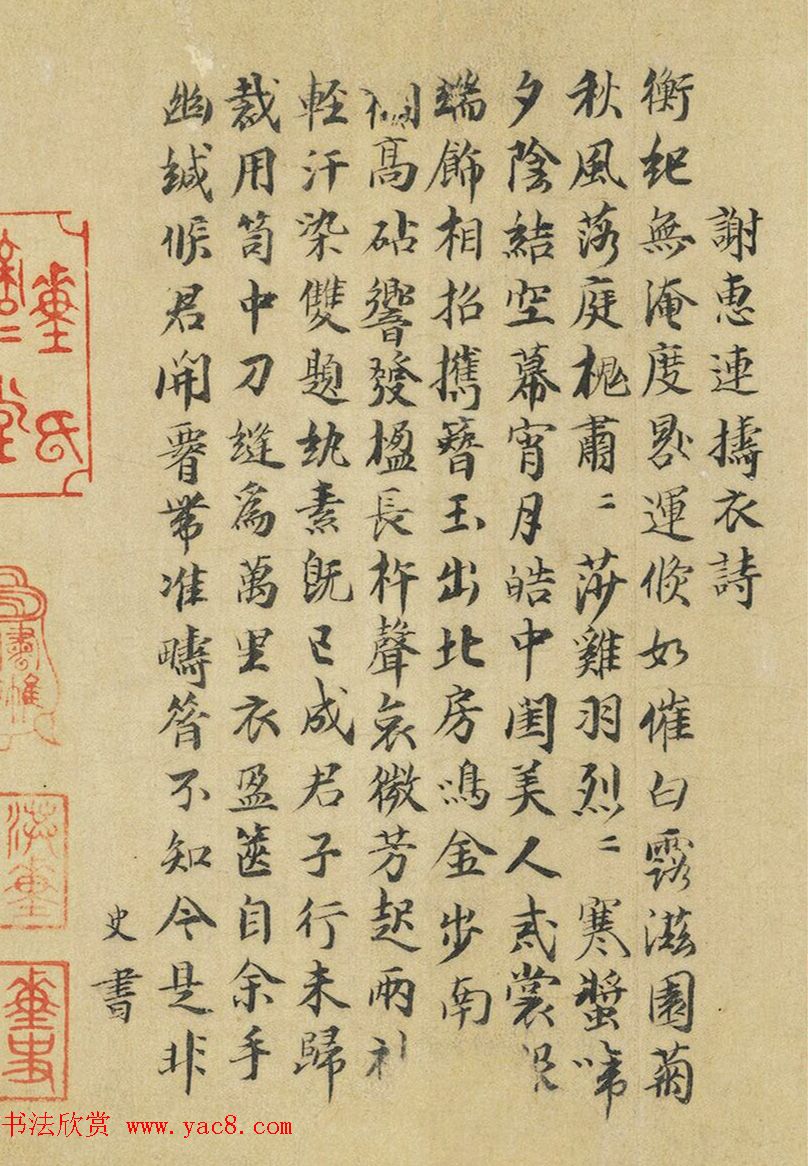 謝惠連擣衣詩
衡紀無淹度晷運倐如催白露滋園菊
秋風落庭槐肅〻莎雞羽烈〻寒螿啼
夕陰結空幕宵月皓中閨美人戒裳服
端飾相招攜簪玉出北房鳴金步南
櫩高砧響發楹長杵聲哀微芳起兩袖
輕汗染雙題紈素既已成君子行未歸
裁用笥中刀縫為萬里衣盈篋自余手
幽緘候君開署帶准疇昝不知今是非
史書
董氏
董史
书法欣赏 www.yac8.com